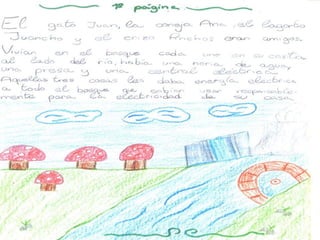 1ª página
El gato Juan, la coneja Ana, el lagarto
Juancho y el erizo Pinchos eran amigos.
Vivían en el bosque cada uno en su casita
al lado del río, había una noria de agua,
una presa y una central eléctrica.
Aquellas tres cosas les daba energía eléctrica
a todo el bosque que sabían usar responsable-
mente para la electricidad de su casa.